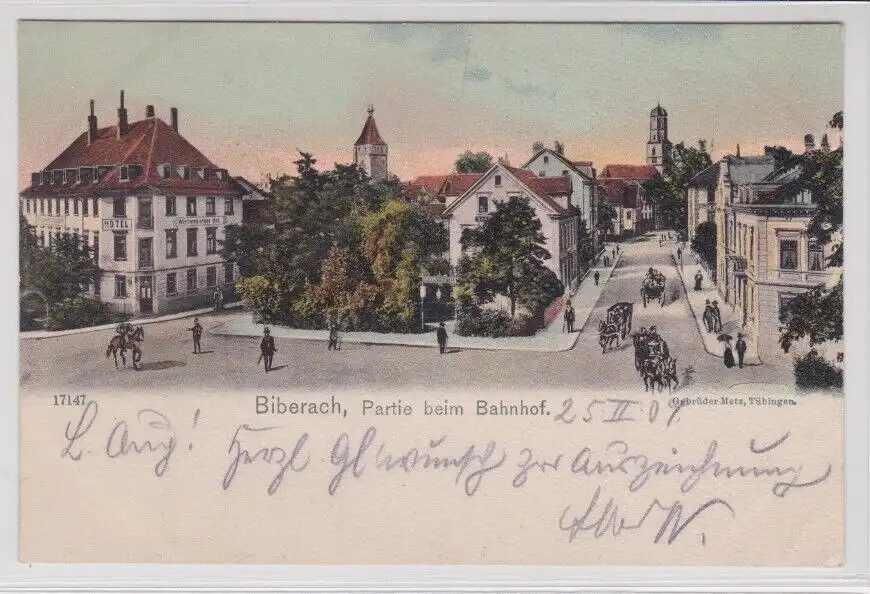 HOTEL
Württemberger Hof
17147
Biberach, Partie beim Bahnhof.
25 II 04
Gebrüder Metz, Tübingen.
L. Aug!
Herzl. Gl wunsch zur Auszeichnung